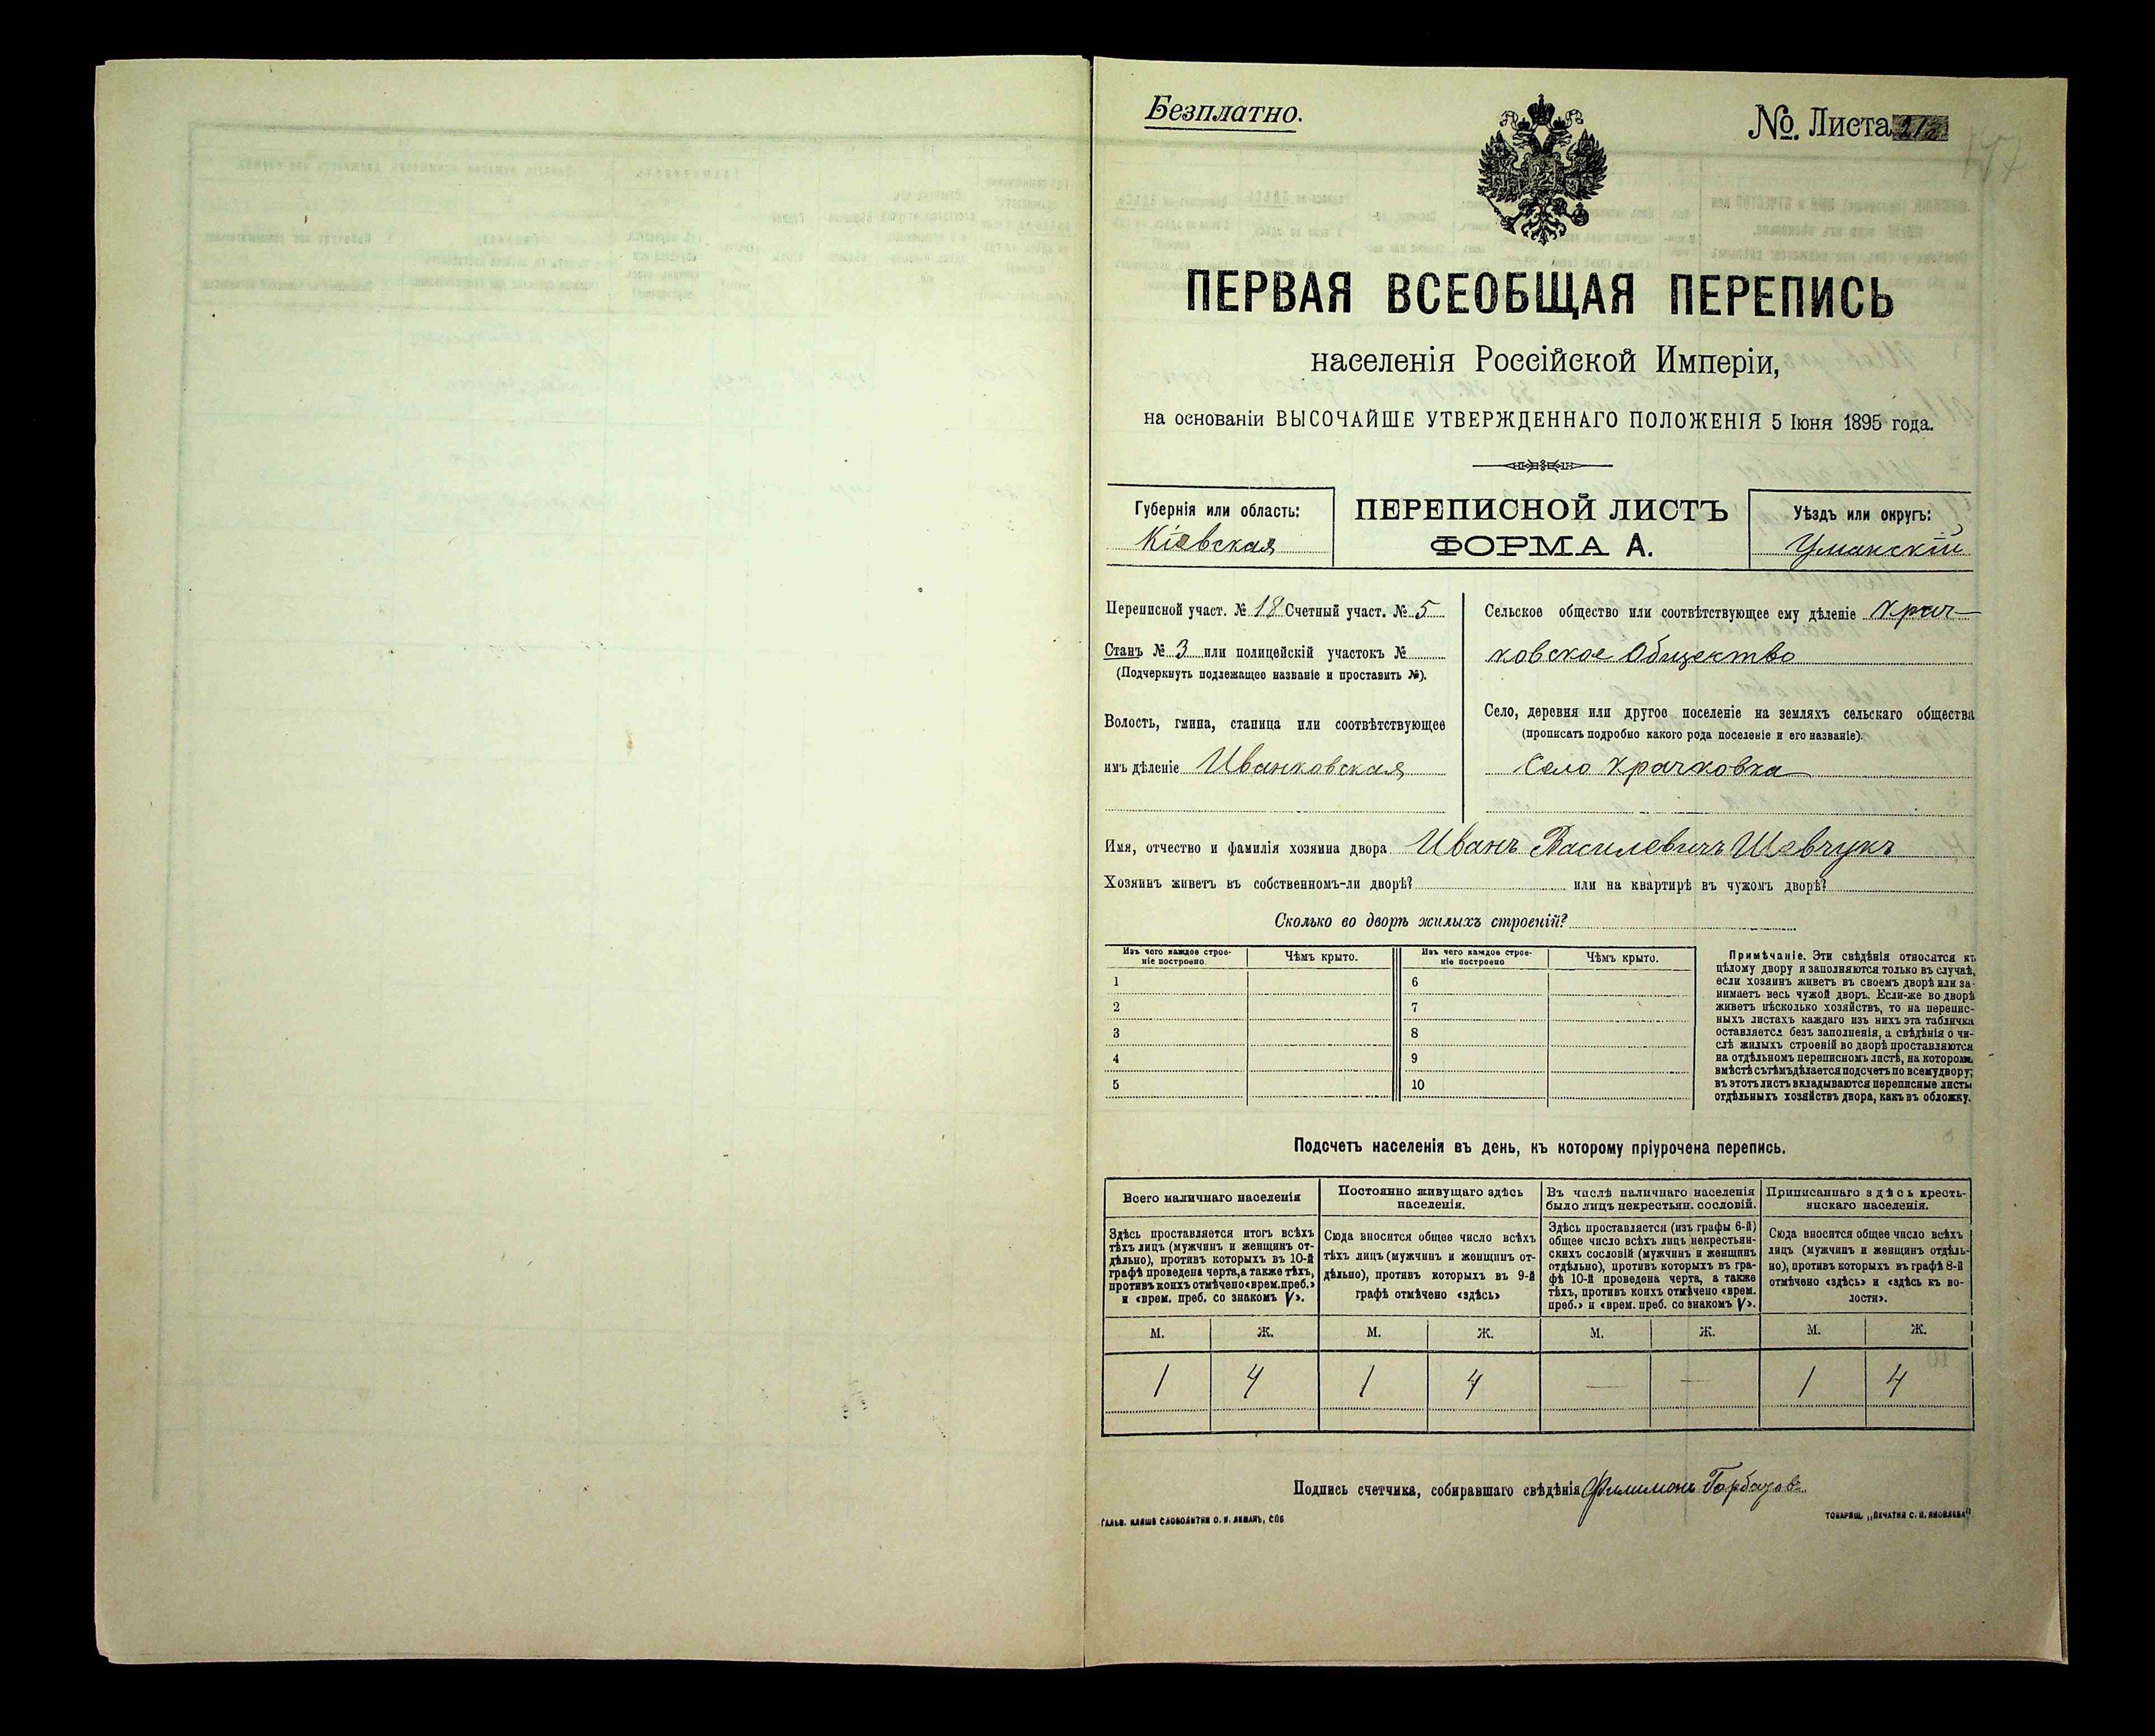 Безплатно.
№ Листа 212
ПЕРВАЯ ВСЕОБЩАЯ ПЕРЕПИСЬ
населенія Россійской Имперіи,
на основаніи ВЫСОЧАЙШЕ УТВЕРЖДЕННАГО ПОЛОЖЕНІЯ 5 Іюня 1895 года.
Губернія или область:
Кіевская
ПЕРЕПИСНОЙ ЛИСТЪ
ФОРМА А.
Уѣздъ или округъ:
Уманскій
Переписной участ. № 18 Счетный участ. № 5
Станъ № 3 или полицейскій участокъ №
(Подчеркнуть подлежащее названіе и проставить №).
Волость, гмина, станица или соотвѣтствующее
имъ дѣленіе Иванковская
Сельское общество или соотвѣтствующее ему дѣленіе Крач-
ковское Общество
Село, деревня или другое поселеніе на земляхъ сельскаго общества
(прописать подробно какого рода поселеніе и его названіе).
Село Крачковка
Имя, отчество и фамилія хозяина двора Иванъ Василевичъ Шевчукъ
Хозяинъ живетъ въ собственномъ-ли дворѣ? или на квартирѣ въ чужомъ дворѣ?
Сколько во дворѣ жилыхъ строеній?
Изъ чего каждое строе-
ніе построено.
Чѣмъ крыто.
Изъ чего каждое строе-
ніе построено
Чѣмъ крыто.
1 6
2 7
3 8
4 9
5 10
Примѣчаніе. Эти свѣдѣнія относятся къ
цѣлому двору и заполняются только въ случаѣ,
если хозяинъ живетъ въ своемъ дворѣ или за-
нимаетъ весь чужой дворъ. Если-же во дворѣ
живетъ нѣсколько хозяйствъ, то на перепис-
ныхъ листахъ каждаго изъ нихъ эта табличка
оставляется безъ заполненія, а свѣдѣнія о чи-
слѣ жилыхъ строеній во дворѣ проставляются
на отдѣльномъ переписномъ листѣ, на которомъ
вмѣстѣ съ тѣмъ дѣлается подсчетъ по всему двору;
въ этотъ листъ вкладываются переписные листы
отдѣльныхъ хозяйствъ двора, какъ въ обложку.
Подсчетъ населенія въ день, къ которому пріурочена перепись.
Всего наличнаго населенія
Здѣсь проставляется итогъ всѣхъ
тѣхъ лицъ (мужчинъ и женщинъ от-
дѣльно), противъ которыхъ въ 10-й
графѣ проведена черта, а также тѣхъ,
противъ коихъ отмѣчено «врем. преб.»
и «врем. преб. со знакомъ V».
Постоянно живущаго здѣсь
населенія.
Сюда вносится общее число всѣхъ
тѣхъ лицъ (мужчинъ и женщинъ от-
дѣльно), противъ которыхъ въ 9-й
графѣ отмѣчено «здѣсь»
Въ числѣ наличнаго населенія
было лицъ некрестьян. сословій.
Здѣсь проставляется (изъ графы 6-й)
общее число всѣхъ лицъ некрестьян-
скихъ сословій (мужчинъ и женщинъ
отдѣльно), противъ которыхъ въ гра-
фѣ 10-й проведена черта, а также
тѣхъ, противъ коихъ отмѣчено «врем.
преб.» и «врем. преб. со знакомъ V».
Приписаннаго здѣсь кресть-
янскаго населенія.
Сюда вносится общее число всѣхъ
лицъ (мужчинъ и женщинъ отдѣль-
но), противъ которыхъ въ графѣ 8-й
отмѣчено «здѣсь» и «здѣсь въ во-
лости».
М. Ж. М. Ж. М. Ж. М. Ж.
1 4 1 4 — — 1 4
Подпись счетчика, собиравшаго свѣдѣнія Филимонъ
ГАЛЬВ. КЛИШЕ СЛОВОЛИТНИ О. И. ЛЕМАНЪ, СПБ
ТОВАРИЩ. „ПЕЧАТНЯ С. П. ЯКОВЛЕВА"